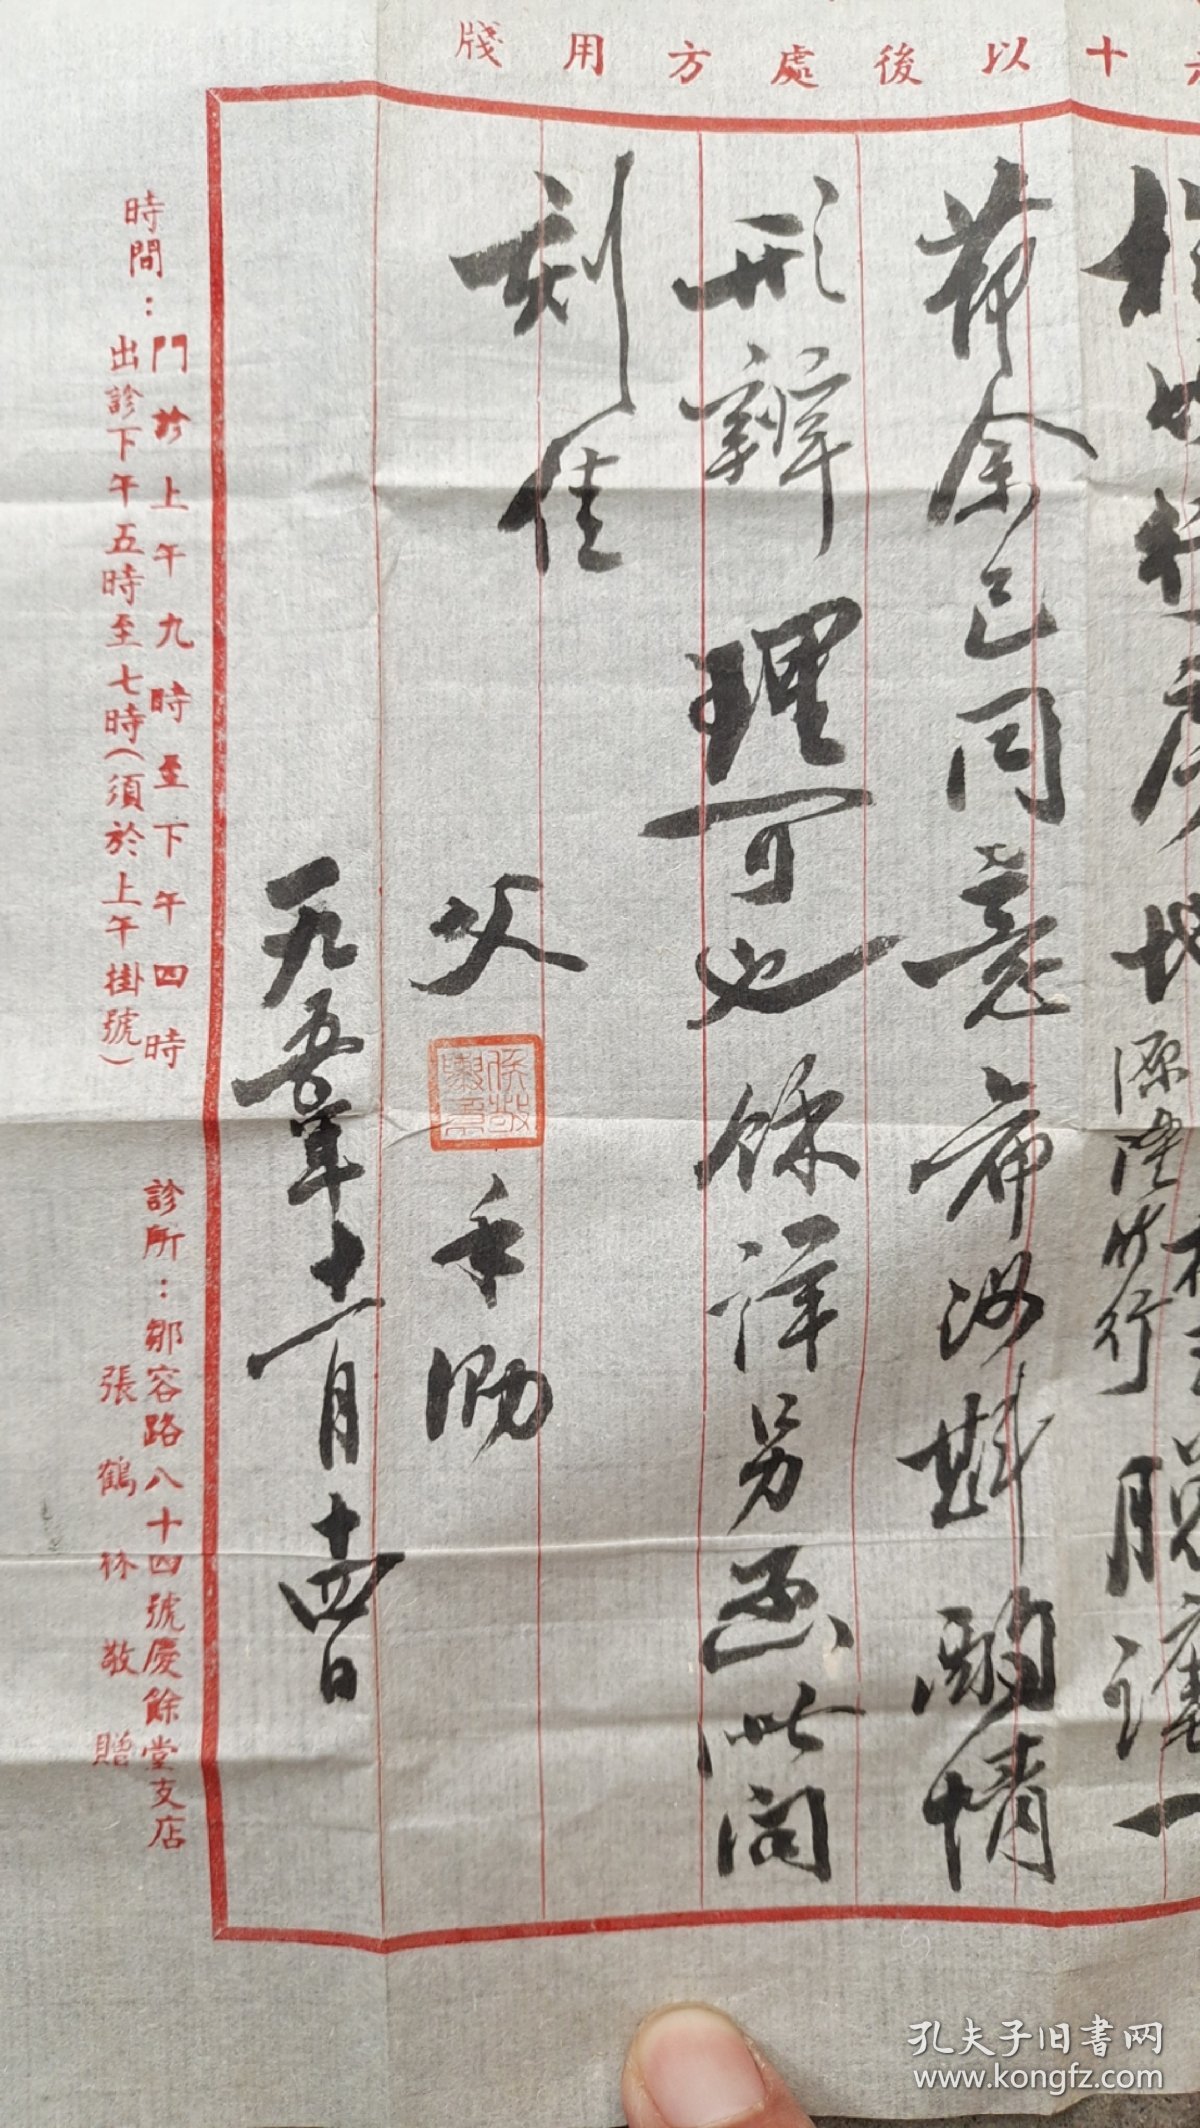 十以後處方用牋
房地源陸竹行
脫讓一
荷余已同意希汝斟酌情
形辦理可也餘詳另函此問
刻佳
父 手泐
一九五〇年十一月十四日
時間：門診上午九時至下午四時
出診下午五時至七時(須於上午掛號)
診所：鄒容路八十四號慶餘堂支店
張鶴林敬贈
孔夫子旧書网
www.kongfz.com